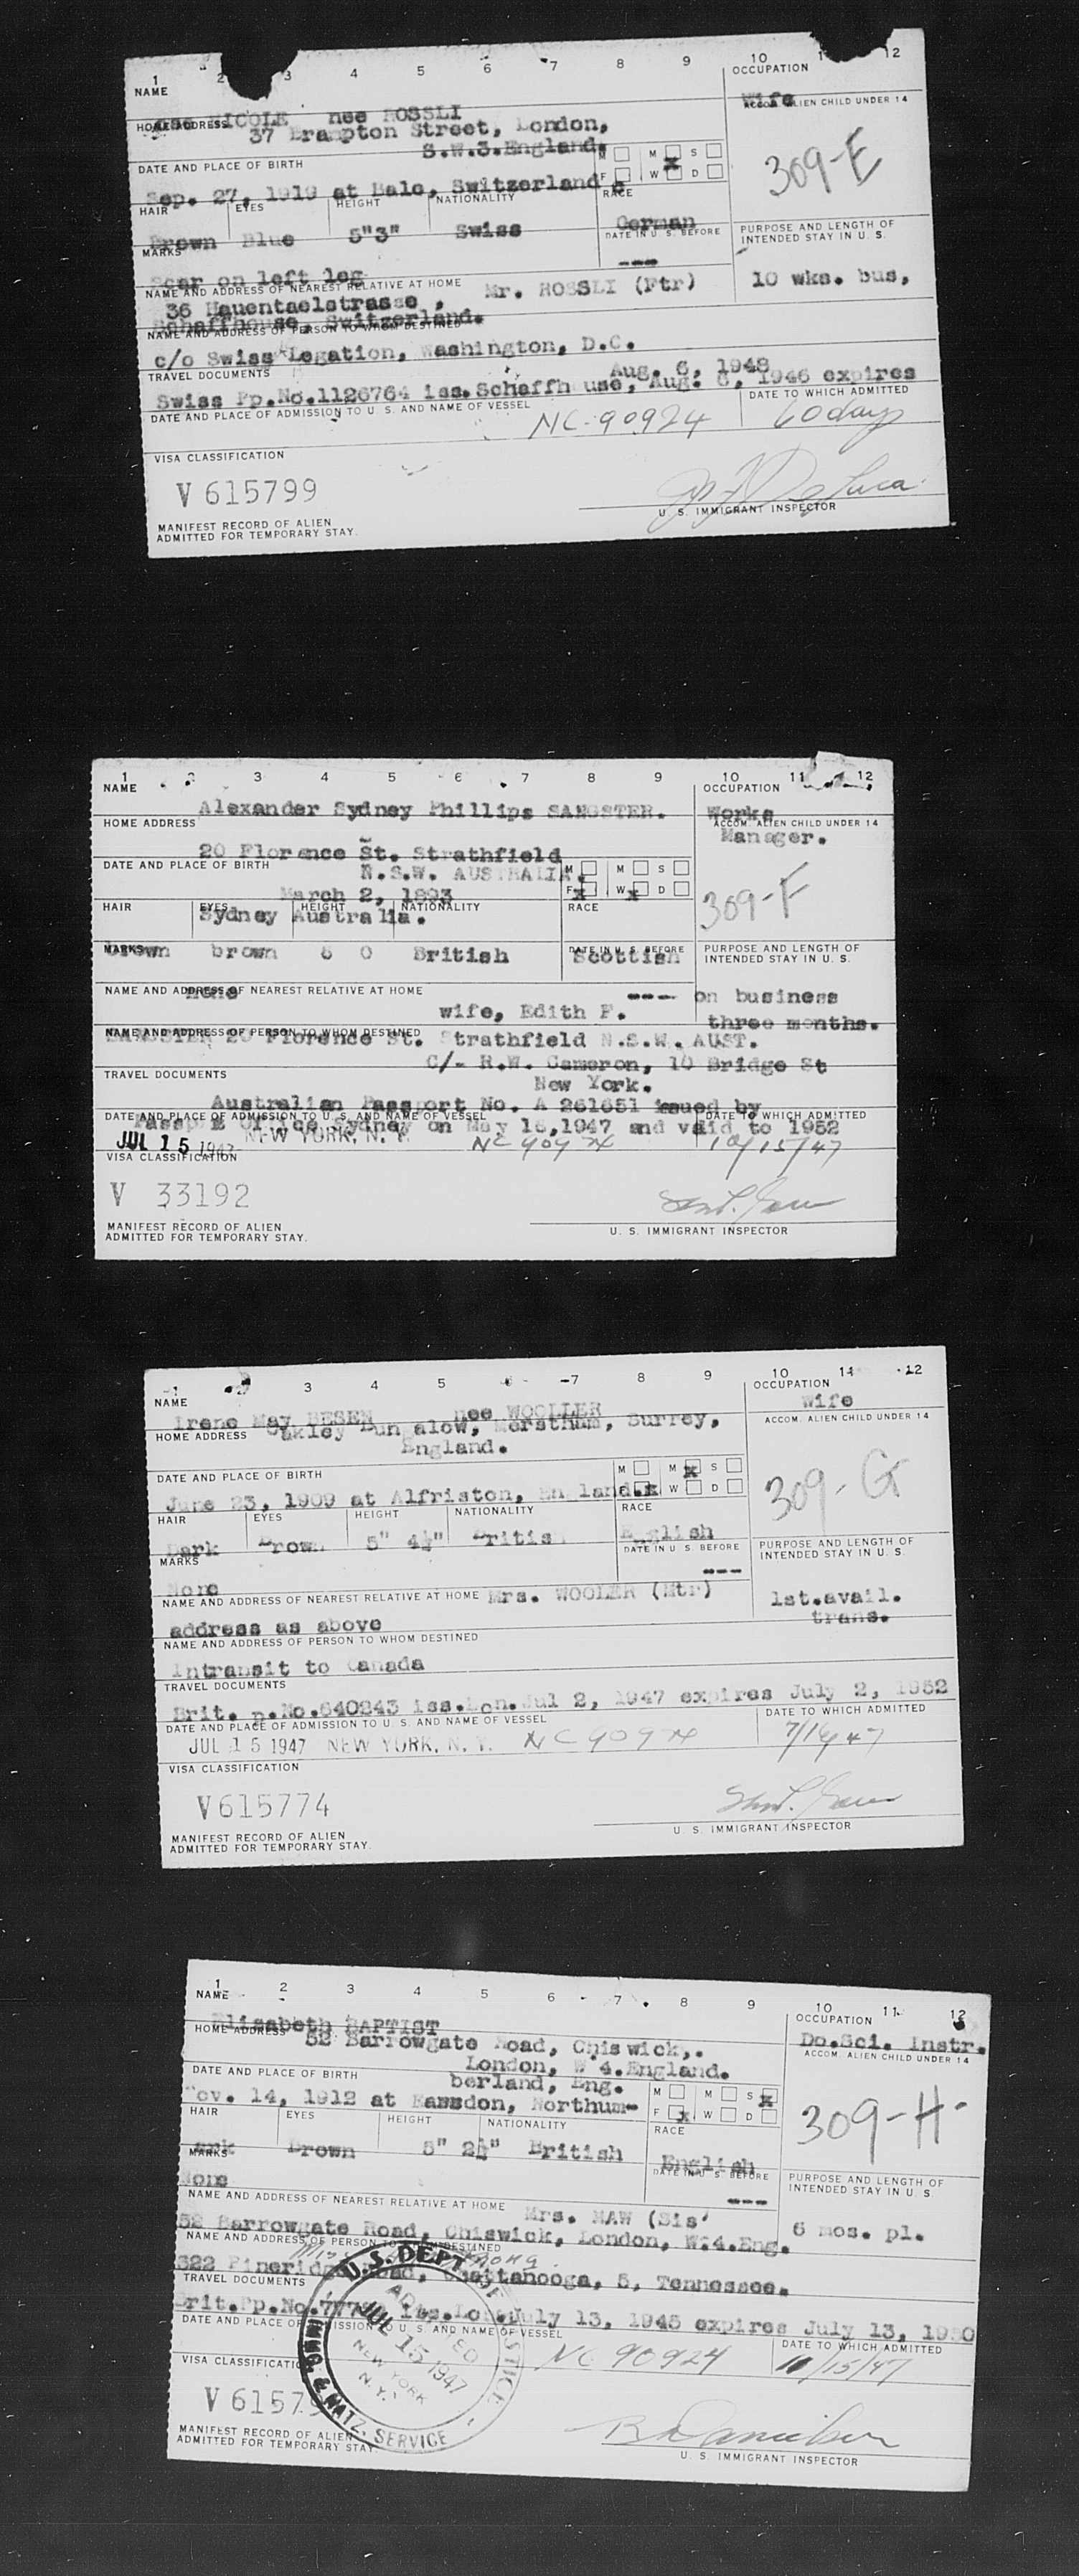 1 2 3 4 5 6 7 8 9 10 1 12
NAME
OCCUPATION
NICOLE nee ROSSLI
Wife
HOME ADDRESS
ACCOM. ALIEN CHILD UNDER 14
37 Brampton Street, London,
S.W.3.England.
DATE AND PLACE OF BIRTH
M M S
F W D
309-E
Sep. 27, 1919 at Bale, Switzerland
HAIR EYES HEIGHT NATIONALITY
RACE
Brown Blue 5"3" Swiss
German
MARKS
DATE IN U S BEFORE
PURPOSE AND LENGTH OF
INTENDED STAY IN U. S.
Scar on left leg
---
NAME AND ADDRESS OF NEAREST RELATIVE AT HOME
Mr. ROSSLI (Ftr)
10 wks. bus,
36 Hauentaelstrasse ,
Schaffhouse, Switzerland.
NAME AND ADDRESS OF PERSON TO WHOM DESTINED
c/o Swiss Legation, Washington, D.C.
TRAVEL DOCUMENTS
Aug. 6, 1948
Swiss Pp.No.1126764 iss.Schaffh use, Aug. 6, 1946 expires
DATE AND PLACE OF ADMISSION TO U S. AND NAME OF VESSEL
DATE TO WHICH ADMITTED
NC-90924
60 days
VISA CLASSIFICATION
V 615799
U. S. IMMIGRANT INSPECTOR
MANIFEST RECORD OF ALIEN
ADMITTED FOR TEMPORARY STAY.
1 2 3 4 5 6 7 8 9 10 11 12
NAME
OCCUPATION
Alexander Sydney Phillips SANGSTER.
Works
HOME ADDRESS
ACCOM. ALIEN CHILD UNDER 14
Manager.
20 Florence St. Strathfield
DATE AND PLACE OF BIRTH
N.S.W. AUSTRALIA.
M M S
F W D
309-F
March 2, 1893
HAIR EYES HEIGHT NATIONALITY
RACE
Sydney Australia.
MARKS
brown brown 6 0 British
Scottish
DATE IN U S. BEFORE
PURPOSE AND LENGTH OF
INTENDED STAY IN U. S.
NAME AND ADDRESS OF NEAREST RELATIVE AT HOME
none
---
on business
wife, Edith F.
three months.
NAME AND ADDRESS OF PERSON TO WHOM DESTINED
SANGSTER 20 Florence St. Strathfield N.S.W. AUST.
C/- R.W. Cameron, 10 Bridge St
TRAVEL DOCUMENTS
New York.
Australian Passport No. A 261651 issued by
DATE AND PLACE OF ADMISSION TO U S. AND NAME OF VESSEL
DATE TO WHICH ADMITTED
Passport Office Sydney on May 16,1947 and valid to 1952
JUL 15 1947 NEW YORK, N. Y.
NC 90924
10/15/47
VISA CLASSIFICATION
V 33192
MANIFEST RECORD OF ALIEN
ADMITTED FOR TEMPORARY STAY.
U. S. IMMIGRANT INSPECTOR
1 3 4 5 6 7 8 9 10 11 12
NAME
OCCUPATION
Irene May BESEN nee WOOLLER
Wife
HOME ADDRESS
ACCOM. ALIEN CHILD UNDER 14
Oakley Bun alow, Merstham, Surrey,
England.
DATE AND PLACE OF BIRTH
M M S
W D
309-G
June 23, 1909 at Alfriston, England.
HAIR EYES HEIGHT NATIONALITY
RACE
Dark Brown 5" 4½" British
English
MARKS
DATE IN U S. BEFORE
PURPOSE AND LENGTH OF
INTENDED STAY IN U. S.
None
---
NAME AND ADDRESS OF NEAREST RELATIVE AT HOME
Mrs. WOOLER (Mtr)
1st.avail.
trans.
address as above
NAME AND ADDRESS OF PERSON TO WHOM DESTINED
Intransit to Canada
TRAVEL DOCUMENTS
Brit. p.No.640243 iss.Lon.Jul 2, 1947 expires July 2, 1952
DATE AND PLACE OF ADMISSION TO U. S. AND NAME OF VESSEL
DATE TO WHICH ADMITTED
JUL 15 1947 NEW YORK, N. Y.
NC 90924
7/16/47
VISA CLASSIFICATION
V615774
MANIFEST RECORD OF ALIEN
ADMITTED FOR TEMPORARY STAY.
U. S. IMMIGRANT INSPECTOR
1 2 3 4 5 6 7 8 9 10 11 12
NAME
OCCUPATION
Elizabeth BAPTIST
Do.Sci. Instr.
HOME ADDRESS
ACCOM. ALIEN CHILD UNDER 14
52 Barrowgate Road, Chiswick,.
London, W 4.England.
DATE AND PLACE OF BIRTH
berland, Eng.
M M S
F W D
309-H-
Nov. 14, 1912 at Earsdon, Northum-
HAIR EYES HEIGHT NATIONALITY
RACE
Brown 5" 2½" British
English
MARKS
DATE IN U S BEFORE
PURPOSE AND LENGTH OF
INTENDED STAY IN U. S
None
---
NAME AND ADDRESS OF NEAREST RELATIVE AT HOME
Mrs. MAW (Sis'
6 mos. pl.
52 Barrowgate Road, Chiswick, London, W.4.Eng.
NAME AND ADDRESS OF PERSON TO WHOM DESTINED
322 Pineridge Road, Chattanooga, 5, Tennessee.
TRAVEL DOCUMENTS
iss.Lon.July 13, 1945 expires July 13, 1950
DATE AND PLACE OF ADMISSION TO U. S. AND NAME OF VESSEL
DATE TO WHICH ADMITTED
NC 90924
10/15/47
U.S. DEPT OF JUSTICE
JUL 15 1947
NEW YORK
N.Y.
IMMG. & NATZ. SERVICE
VISA CLASSIFICATION
V 6157
MANIFEST RECORD OF ALIEN
ADMITTED FOR TEMPORARY STAY.
U. S. IMMIGRANT INSPECTOR